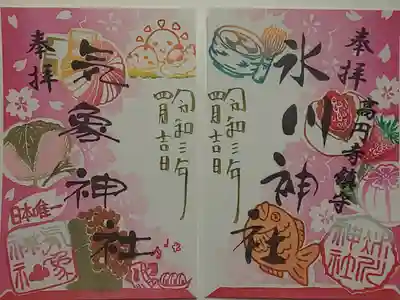 奉拝
高円寺鎮守
氷川神社
令和三年
四月吉日
氷川神社
気象神社
奉拝
令和三年
四月吉日
日本唯一
気象神社